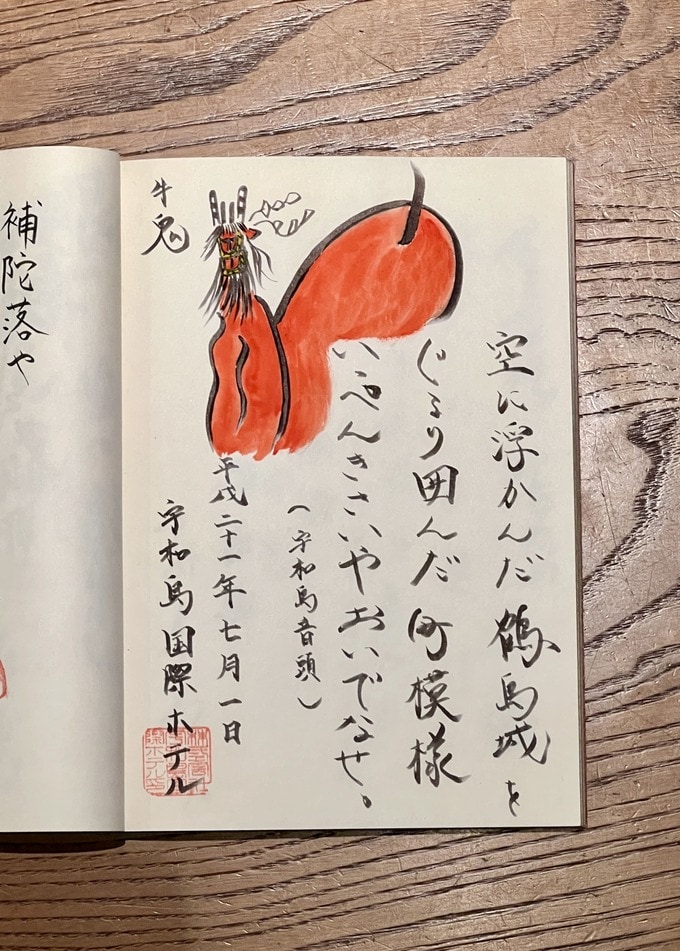 空に浮かんだ鶴島城を
ぐるり囲んだ町模様
いっぺんきさいやおいでなせ。
(宇和島音頭)
平成二十一年七月一日
宇和島国際ホテル
牛鬼
補陀落や